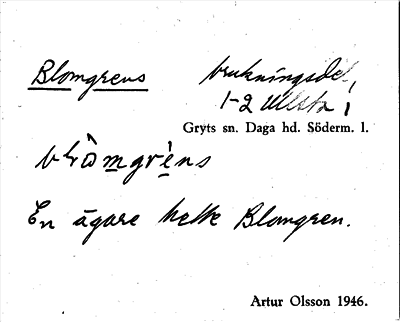 Blomgrens brukningsdel,
1-2 Ullsta i
Gryts sn. Daga hd. Söderm. l.
blòmgrèns
En ägare hette Blomgren.
Artur Olsson 1946.